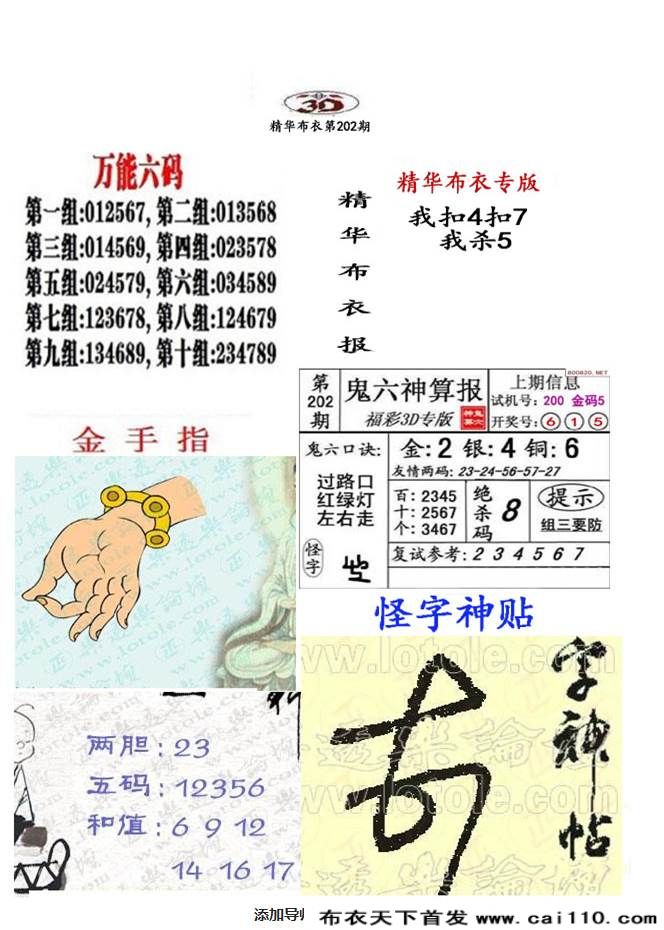 3D
精华布衣第202期
万能六码
第一组:012567,第二组:013568
第三组:014569,第四组:023578
第五组:024579,第六组:034589
第七组:123678,第八组:124679
第九组:134689,第十组:234789
精华布衣报
精华布衣专版
我扣4扣7
我杀5
金手指
800820.NET
第202期
鬼六神算报
福彩3D专版
上期信息
试机号:200 金码5
开奖号:615
鬼六口诀:
过路口
红绿灯
左右走
怪字
金:2 银:4 铜:6
友情两码:23-24-56-57-27
百:2345
十:2567
个:3467
绝杀码
8
提示
组三要防
复试参考:2 3 4 5 6 7
怪字神贴
www.lotole.com
字神帖
两胆:23
五码:12356
和值:6 9 12
14 16 17
布衣天下首发 www.cai110.com